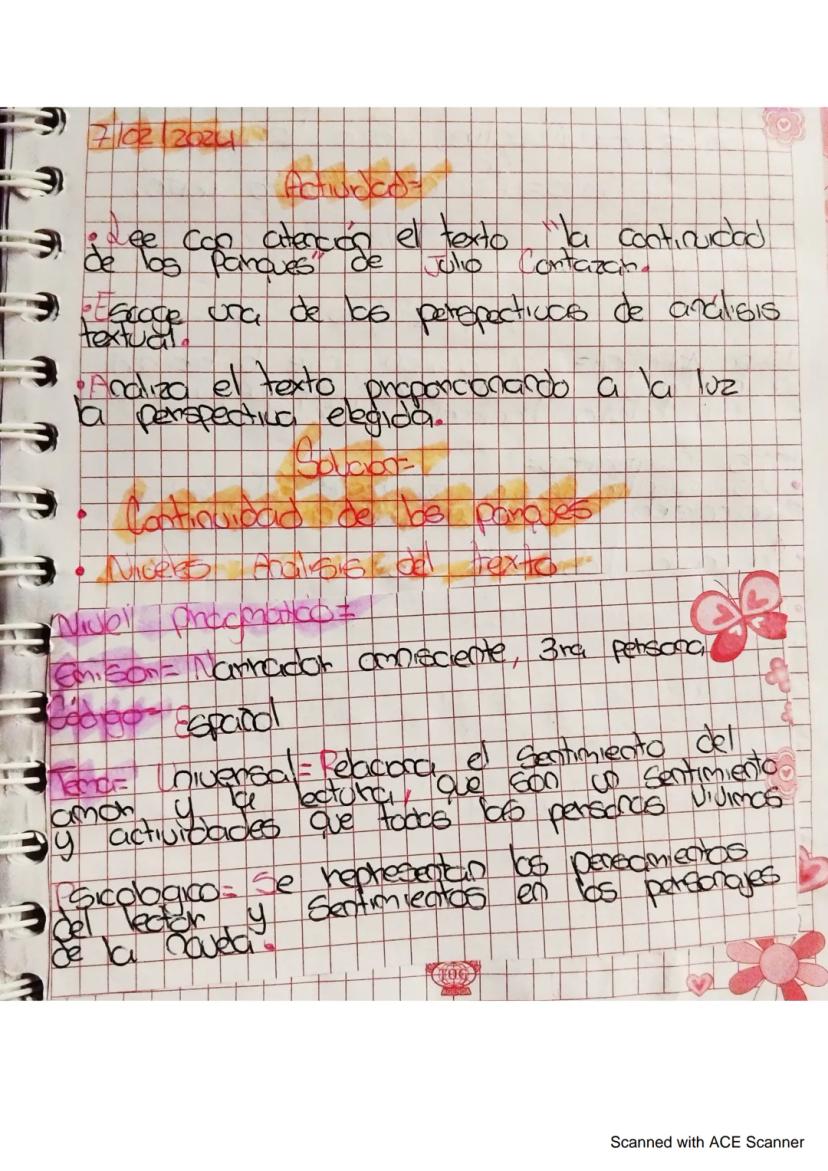 7/02/2024
Actividad=
• Lee con atención el texto "la continuidad
de los parques" de Julio Contazar.
• Escoge una de los perspectivas de análisis
textual.
• Analiza el texto proporcionando a la luz
la perspectiva elegida.
Solucion=
• Continuidad de los parques
• Niveles Analisis del texto
Nivel pragmatico=
Emisor= Narrador omnisciente, 3ra persona
Código= Español
Tema= Universal= Relaciona el sentimiento del
amor y la lectura, que son un sentimiento
y actividades que todos las personas vivimos
Psicologico= Se representan los pensamientos
del lector y sentimientos en los personajes
de la novela.
Scanned with ACE Scanner